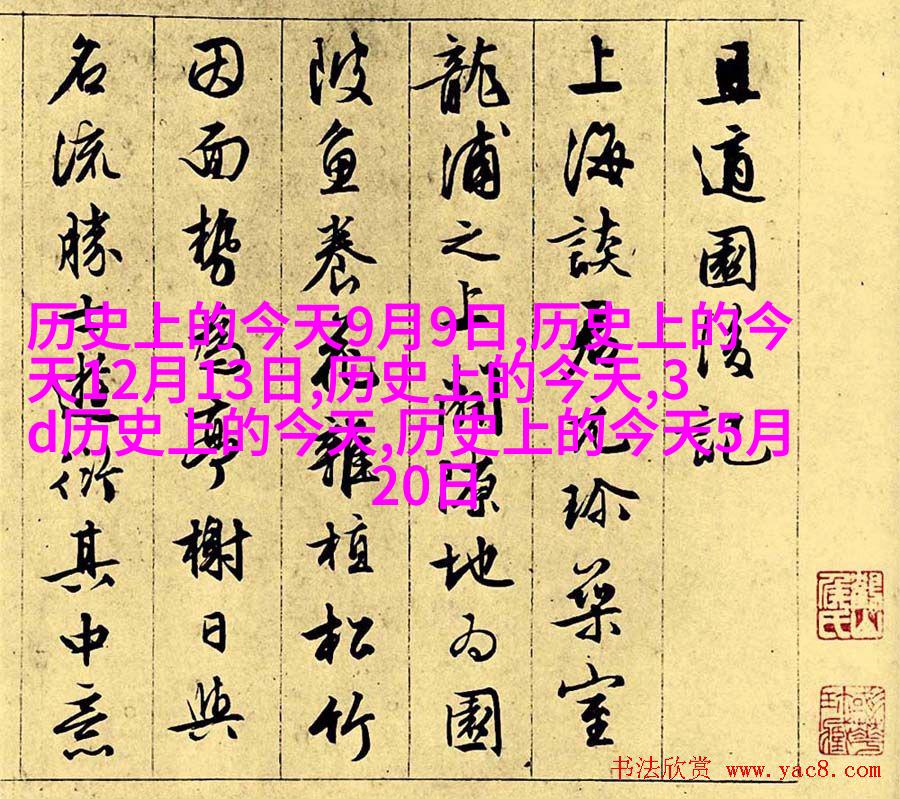 且適園後記
上海談君元珍築室
龍浦之上地为園
陂魚養花雜植松竹
因面勢為亭榭日與
名流勝士遊衍其中意
历史上的今天9月9日,历史上的今
天12月13日,历史上的今天,3
d历史上的今天,历史上的今天5月
20日
书法欣赏 www.yac8.com